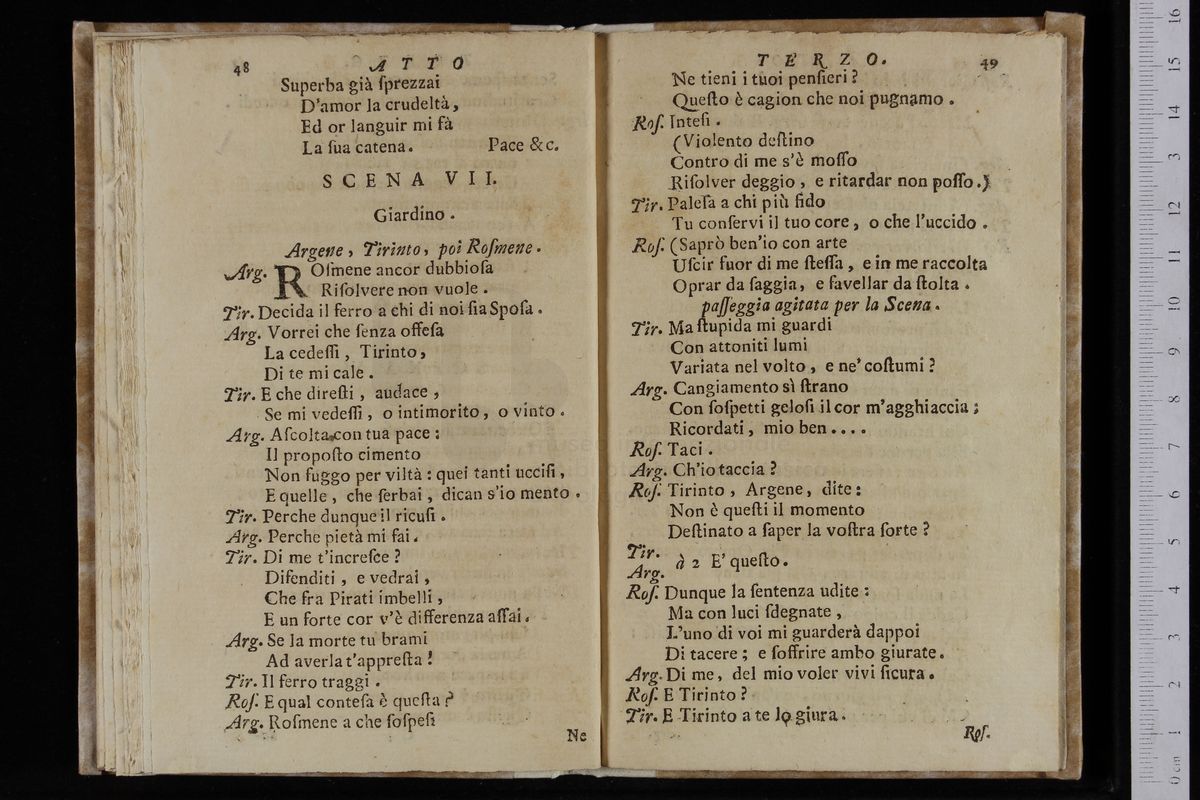 48 ATTO
Superba già ſprezzai
D'amor la crudeltà,
Ed or languir mi fà
La ſua catena. Pace &c.
SCENA VII.
Giardino.
Argene, Tirinto, poi Roſmene.
Arg. ROſmene ancor dubbioſa
Riſolvere non vuole.
Tir. Decida il ferro a chi di noi ſia Spoſa.
Arg. Vorrei che ſenza offeſa
La cedeſſi, Tirinto,
Di te mi cale.
Tir. E che direſti, audace,
Se mi vedeſſi, o intimorito, o vinto.
Arg. Aſcolta con tua pace:
Il propoſto cimento
Non fuggo per viltà: quei tanti ucciſi,
E quelle, che ſerbai, dican s'io mento.
Tir. Perche dunque il ricuſi.
Arg. Perche pietà mi fai.
Tir. Di me t'increſce?
Difenditi, e vedrai,
Che fra Pirati imbelli,
E un forte cor v'è differenza aſſai.
Arg. Se la morte tu brami
Ad averla t'appreſta!
Tir. Il ferro traggi.
Roſ. E qual conteſa è queſta?
Arg. Roſmene a che ſoſpeſi
Ne
TERZO. 49
Ne tieni i tuoi penſieri?
Queſto è cagion che noi pugnamo.
Roſ. Inteſi.
(Violento deſtino
Contro di me s'è moſſo
Riſolver deggio, e ritardar non poſſo.)
Tir. Paleſa a chi più fido
Tu conſervi il tuo core, o che l'uccido.
Roſ. (Saprò ben'io con arte
Uſcir fuor di me ſteſſa, e in me raccolta
Oprar da ſaggia, e favellar da ſtolta.
paſſeggia agitata per la Scena.
Tir. Ma ſtupida mi guardi
Con attoniti lumi
Variata nel volto, e ne' coſtumi?
Arg. Cangiamento sì ſtrano
Con ſoſpetti geloſi il cor m'agghiaccia;
Ricordati, mio ben....
Roſ. Taci.
Arg. Ch'io taccia?
Roſ. Tirinto, Argene, dite:
Non è queſti il momento
Deſtinato a ſaper la voſtra ſorte?
Tir.
Arg. à 2 E' queſto.
Roſ. Dunque la ſentenza udite:
Ma con luci ſdegnate,
L'uno di voi mi guarderà dappoi
Di tacere; e ſoffrire ambo giurate.
Arg. Di me, del mio voler vivi ſicura.
Roſ. E Tirinto?
Tir. E Tirinto a te lo giura.
Roſ.
0 cm 1 2 3 4 5 6 7 8 9 10 11 12 13 14 15 16